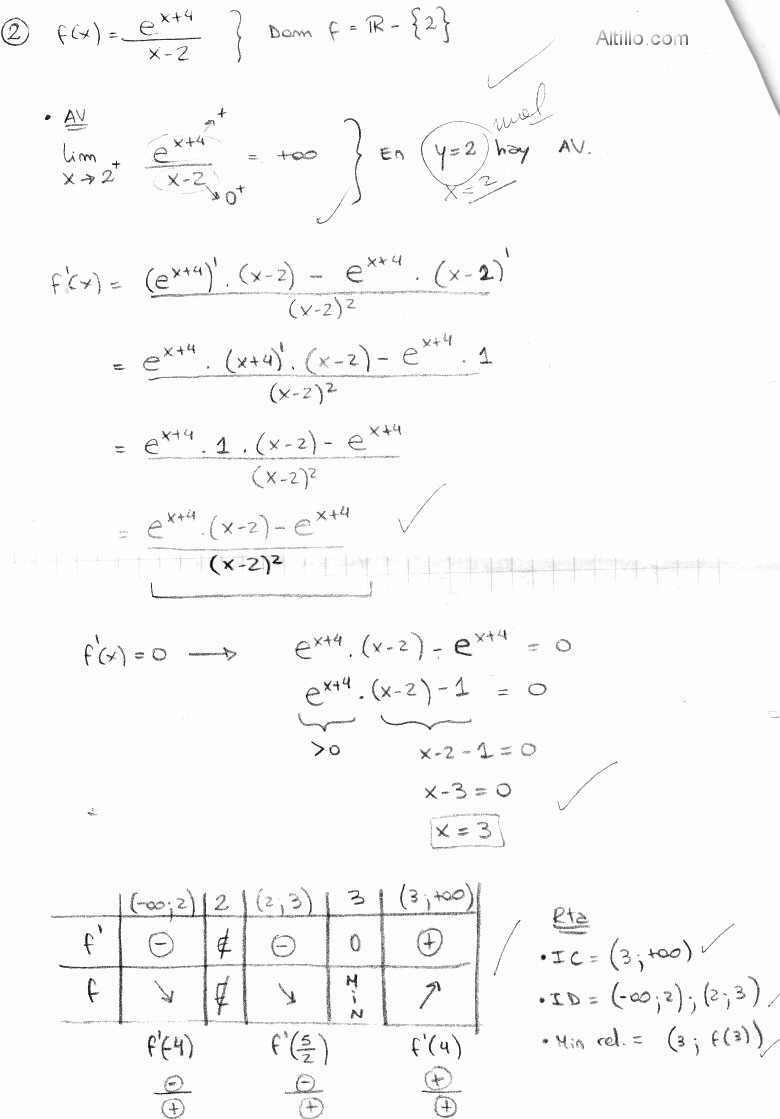 ② f(x) = e^(x+4) / (x-2) } Dom f = ℝ - {2}
Altillo.com
• AV
mal
lim x→2⁺ e^(x+4) →⁺ / (x-2) → 0⁺ = +∞ } En y=2 hay AV.
x=2
f'(x) = ((e^(x+4))' . (x-2) - e^(x+4) . (x-2)') / (x-2)²
= (e^(x+4) . (x+4)' . (x-2) - e^(x+4) . 1) / (x-2)²
= (e^(x+4) . 1 . (x-2) - e^(x+4)) / (x-2)²
= (e^(x+4) . (x-2) - e^(x+4)) / (x-2)²
f'(x) = 0 → e^(x+4) . (x-2) - e^(x+4) = 0
e^(x+4) . (x-2) - 1 = 0
>0 x-2-1=0
x-3=0
x = 3
(-∞;2) 2 (2;3) 3 (3;+∞)
f' ⊖ ∄ ⊖ 0 ⊕
f ↘ ∄ ↘ MiN ↗
f'(-4) f'(5/2) f'(4)
⊖/⊕ ⊖/⊕ ⊕/⊕
Rta
• IC = (3;+∞)
• ID = (-∞;2);(2;3)
• Min rel. = (3; f(3))